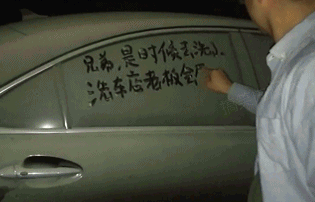 兄弟,是时候去洗了
洗车店老板金